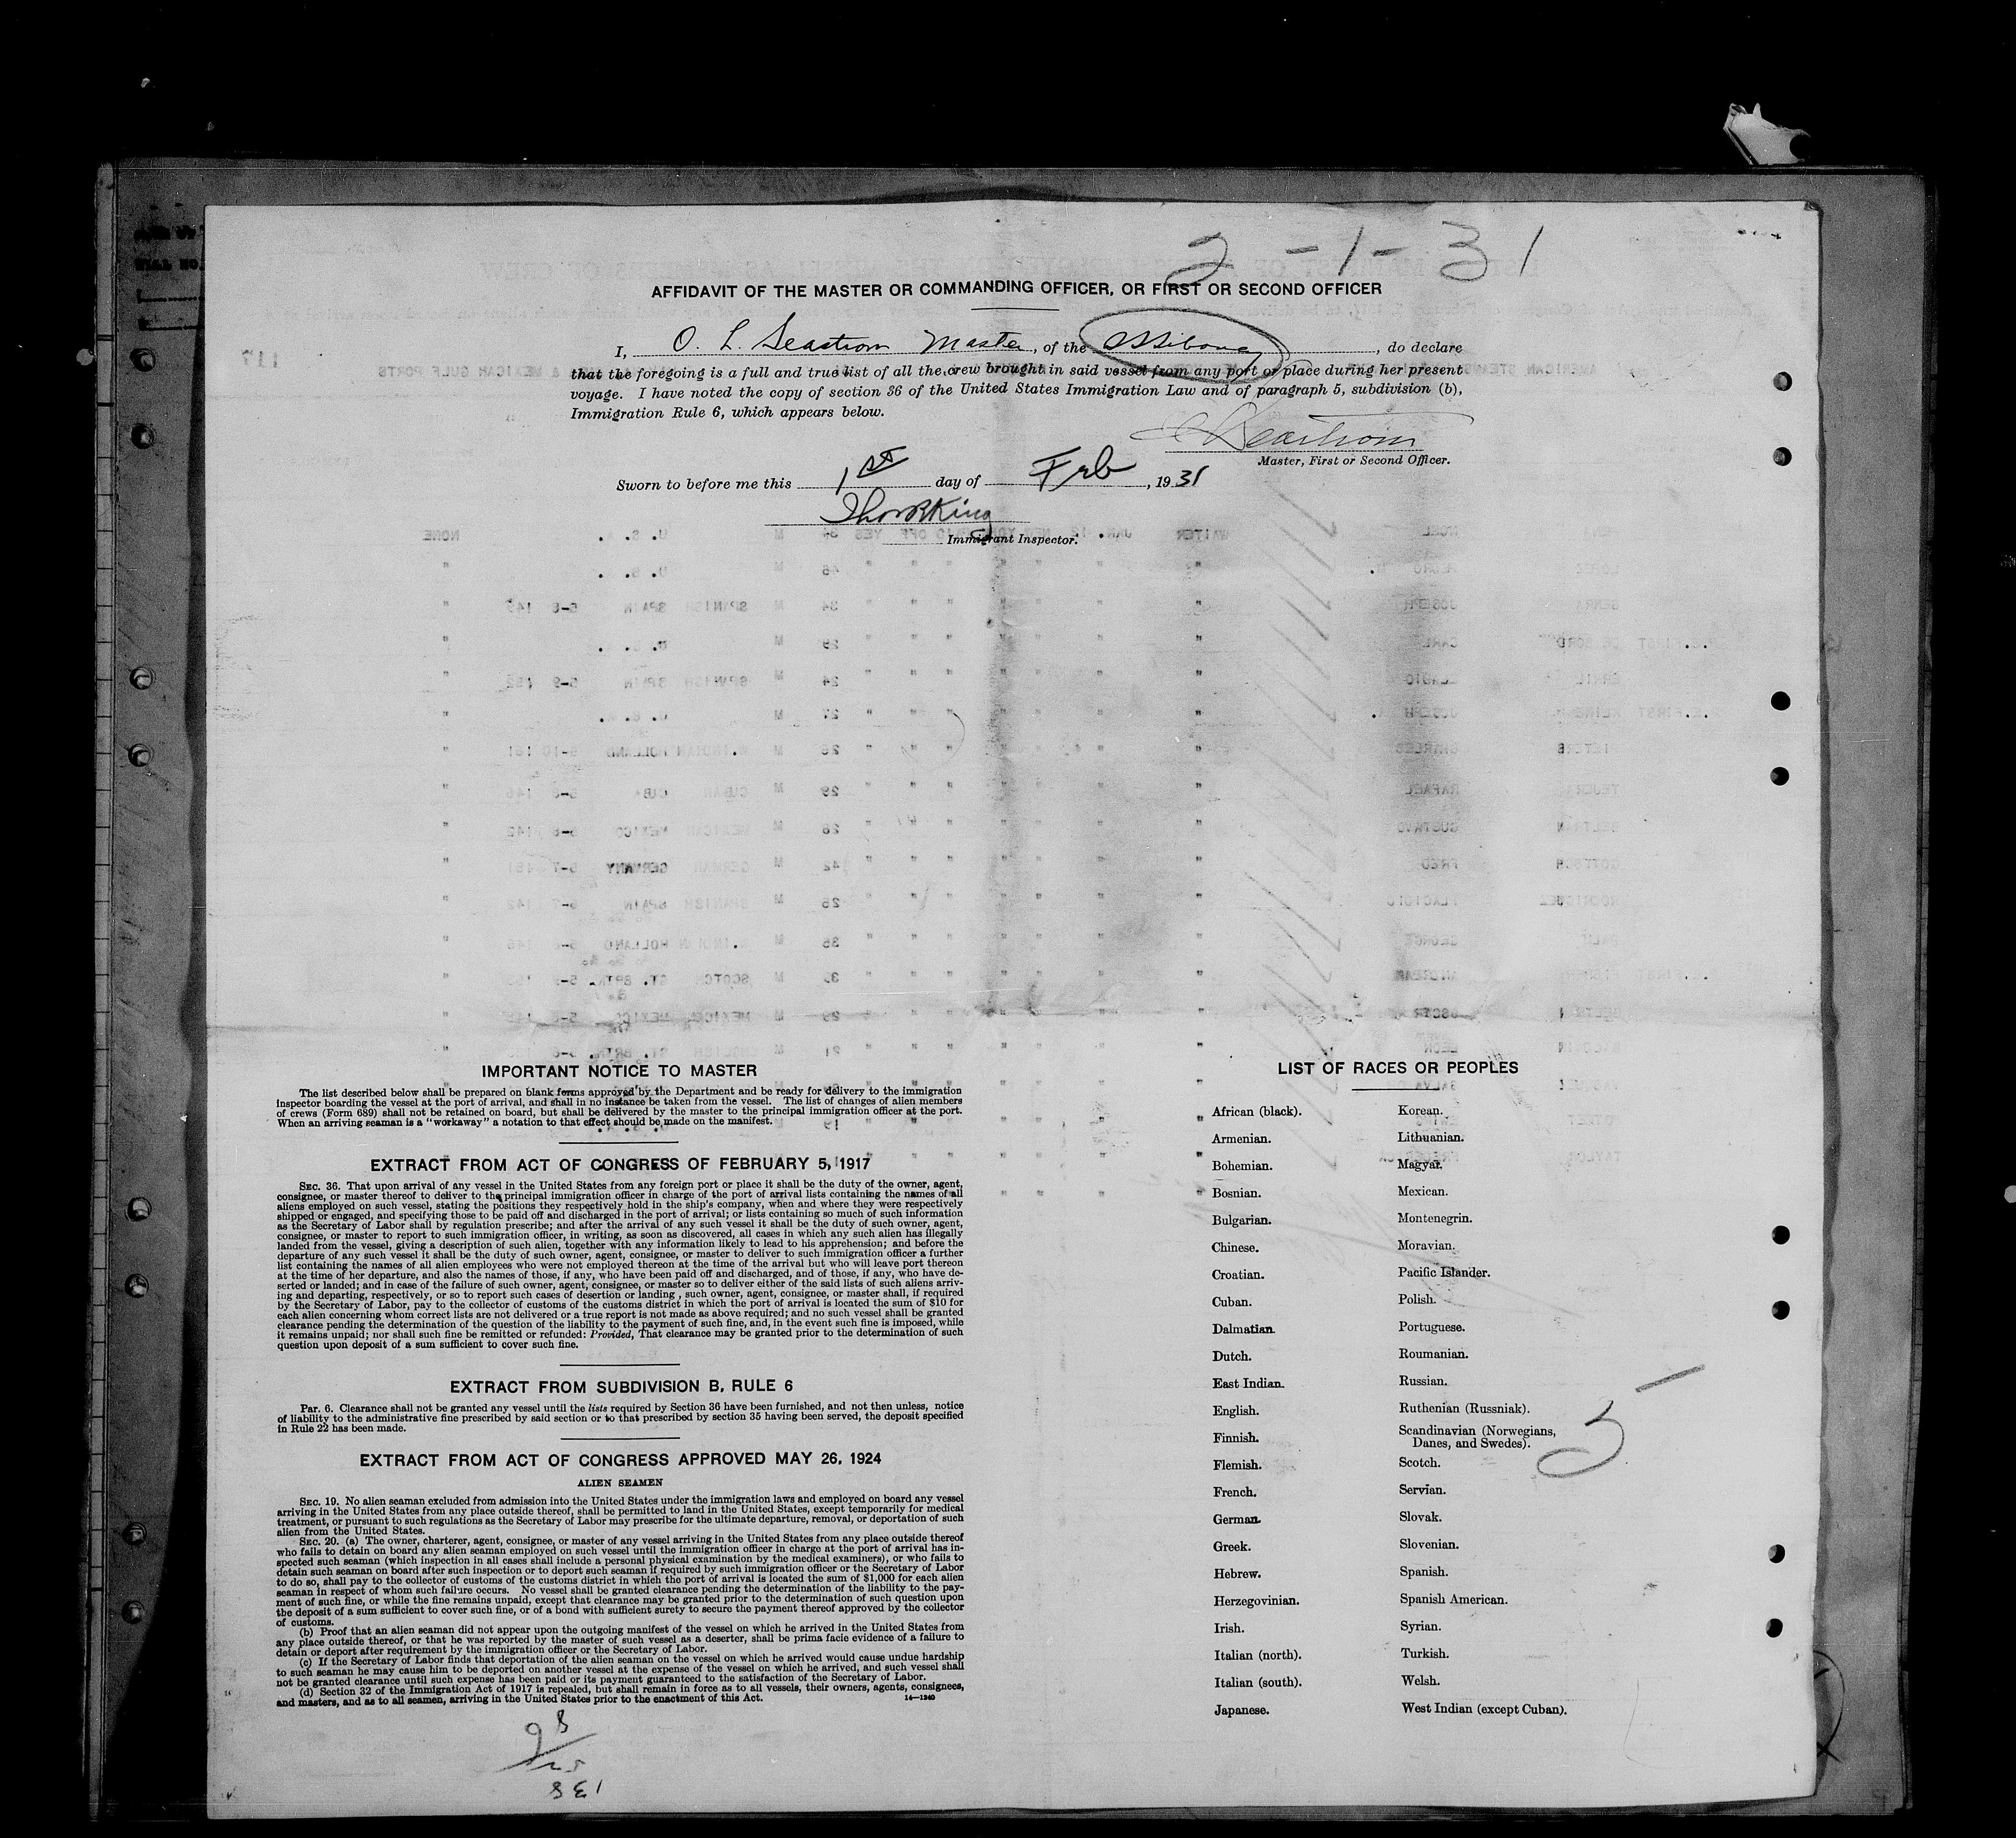 2-1-31
AFFIDAVIT OF THE MASTER OR COMMANDING OFFICER, OR FIRST OR SECOND OFFICER
I, O. L. Seastrom Master, of the SS Siboney, do declare
that the foregoing is a full and true list of all the crew brought in said vessel from any port or place during her present
voyage. I have noted the copy of section 36 of the United States Immigration Law and of paragraph 5, subdivision (b),
Immigration Rule 6, which appears below.
Seastrom
Master, First or Second Officer.
Sworn to before me this 1st day of Feb, 1931
King
Immigrant Inspector.
IMPORTANT NOTICE TO MASTER
The list described below shall be prepared on blank forms approved by the Department and be ready for delivery to the immigration
inspector boarding the vessel at the port of arrival, and shall in no instance be taken from the vessel. The list of changes of alien members
of crews (Form 689) shall not be retained on board, but shall be delivered by the master to the principal immigration officer at the port.
When an arriving seaman is a "workaway" a notation to that effect should be made on the manifest.
EXTRACT FROM ACT OF CONGRESS OF FEBRUARY 5, 1917
SEC. 36. That upon arrival of any vessel in the United States from any foreign port or place it shall be the duty of the owner, agent,
consignee, or master thereof to deliver to the principal immigration officer in charge of the port of arrival lists containing the names of all
aliens employed on such vessel, stating the positions they respectively hold in the ship's company, when and where they were respectively
shipped or engaged, and specifying those to be paid off and discharged in the port of arrival; or lists containing so much of such information
as the Secretary of Labor shall by regulation prescribe; and after the arrival of any such vessel it shall be the duty of such owner, agent,
consignee, or master to report to such immigration officer, in writing, as soon as discovered, all cases in which any such alien has illegally
landed from the vessel, giving a description of such alien, together with any information likely to lead to his apprehension; and before the
departure of any such vessel it shall be the duty of such owner, agent, consignee, or master to deliver to such immigration officer a further
list containing the names of all alien employees who were not employed thereon at the time of the arrival but who will leave port thereon
at the time of her departure, and also the names of those, if any, who have been paid off and discharged, and of those, if any, who have de-
serted or landed; and in case of the failure of such owner, agent, consignee, or master so to deliver either of the said lists of such aliens arriv-
ing and departing, respectively, or so to report such cases of desertion or landing , such owner, agent, consignee, or master shall, if required
by the Secretary of Labor, pay to the collector of customs of the customs district in which the port of arrival is located the sum of $10 for
each alien concerning whom correct lists are not delivered or a true report is not made as above required; and no such vessel shall be granted
clearance pending the determination of the question of the liability to the payment of such fine, and, in the event such fine is imposed, while
it remains unpaid; nor shall such fine be remitted or refunded: Provided, That clearance may be granted prior to the determination of such
question upon deposit of a sum sufficient to cover such fine.
EXTRACT FROM SUBDIVISION B, RULE 6
Par. 6. Clearance shall not be granted any vessel until the lists required by Section 36 have been furnished, and not then unless, notice
of liability to the administrative fine prescribed by said section or to that prescribed by section 35 having been served, the deposit specified
in Rule 22 has been made.
EXTRACT FROM ACT OF CONGRESS APPROVED MAY 26, 1924
ALIEN SEAMEN
SEC. 19. No alien seaman excluded from admission into the United States under the immigration laws and employed on board any vessel
arriving in the United States from any place outside thereof, shall be permitted to land in the United States, except temporarily for medical
treatment, or pursuant to such regulations as the Secretary of Labor may prescribe for the ultimate departure, removal, or deportation of such
alien from the United States.
SEC. 20. (a) The owner, charterer, agent, consignee, or master of any vessel arriving in the United States from any place outside thereof
who fails to detain on board any alien seaman employed on such vessel until the immigration officer in charge at the port of arrival has in-
spected such seaman (which inspection in all cases shall include a personal physical examination by the medical examiners), or who fails to
detain such seaman on board after such inspection or to deport such seaman if required by such immigration officer or the Secretary of Labor
to do so, shall pay to the collector of customs of the customs district in which the port of arrival is located the sum of $1,000 for each alien
seaman in respect of whom such failure occurs. No vessel shall be granted clearance pending the determination of the liability to the pay-
ment of such fine, or while the fine remains unpaid, except that clearance may be granted prior to the determination of such question upon
the deposit of a sum sufficient to cover such fine, or of a bond with sufficient surety to secure the payment thereof approved by the collector
of customs.
(b) Proof that an alien seaman did not appear upon the outgoing manifest of the vessel on which he arrived in the United States from
any place outside thereof, or that he was reported by the master of such vessel as a deserter, shall be prima facie evidence of a failure to
detain or deport after requirement by the immigration officer or the Secretary of Labor.
(c) If the Secretary of Labor finds that deportation of the alien seaman on the vessel on which he arrived would cause undue hardship
to such seaman he may cause him to be deported on another vessel at the expense of the vessel on which he arrived, and such vessel shall
not be granted clearance until such expense has been paid or its payment guaranteed to the satisfaction of the Secretary of Labor.
(d) Section 32 of the Immigration Act of 1917 is repealed, but shall remain in force as to all vessels, their owners, agents, consignees,
and masters, and as to all seamen, arriving in the United States prior to the enactment of this Act. 14—1240
LIST OF RACES OR PEOPLES
African (black). Korean.
Armenian. Lithuanian.
Bohemian. Magyar.
Bosnian. Mexican.
Bulgarian. Montenegrin.
Chinese. Moravian.
Croatian. Pacific Islander.
Cuban. Polish.
Dalmatian. Portuguese.
Dutch. Roumanian.
East Indian. Russian.
English. Ruthenian (Russniak).
Finnish. Scandinavian (Norwegians,
Danes, and Swedes).
Flemish. Scotch.
French. Servian.
German. Slovak.
Greek. Slovenian.
Hebrew. Spanish.
Herzegovinian. Spanish American.
Irish. Syrian.
Italian (north). Turkish.
Italian (south). Welsh.
Japanese. West Indian (except Cuban).
5